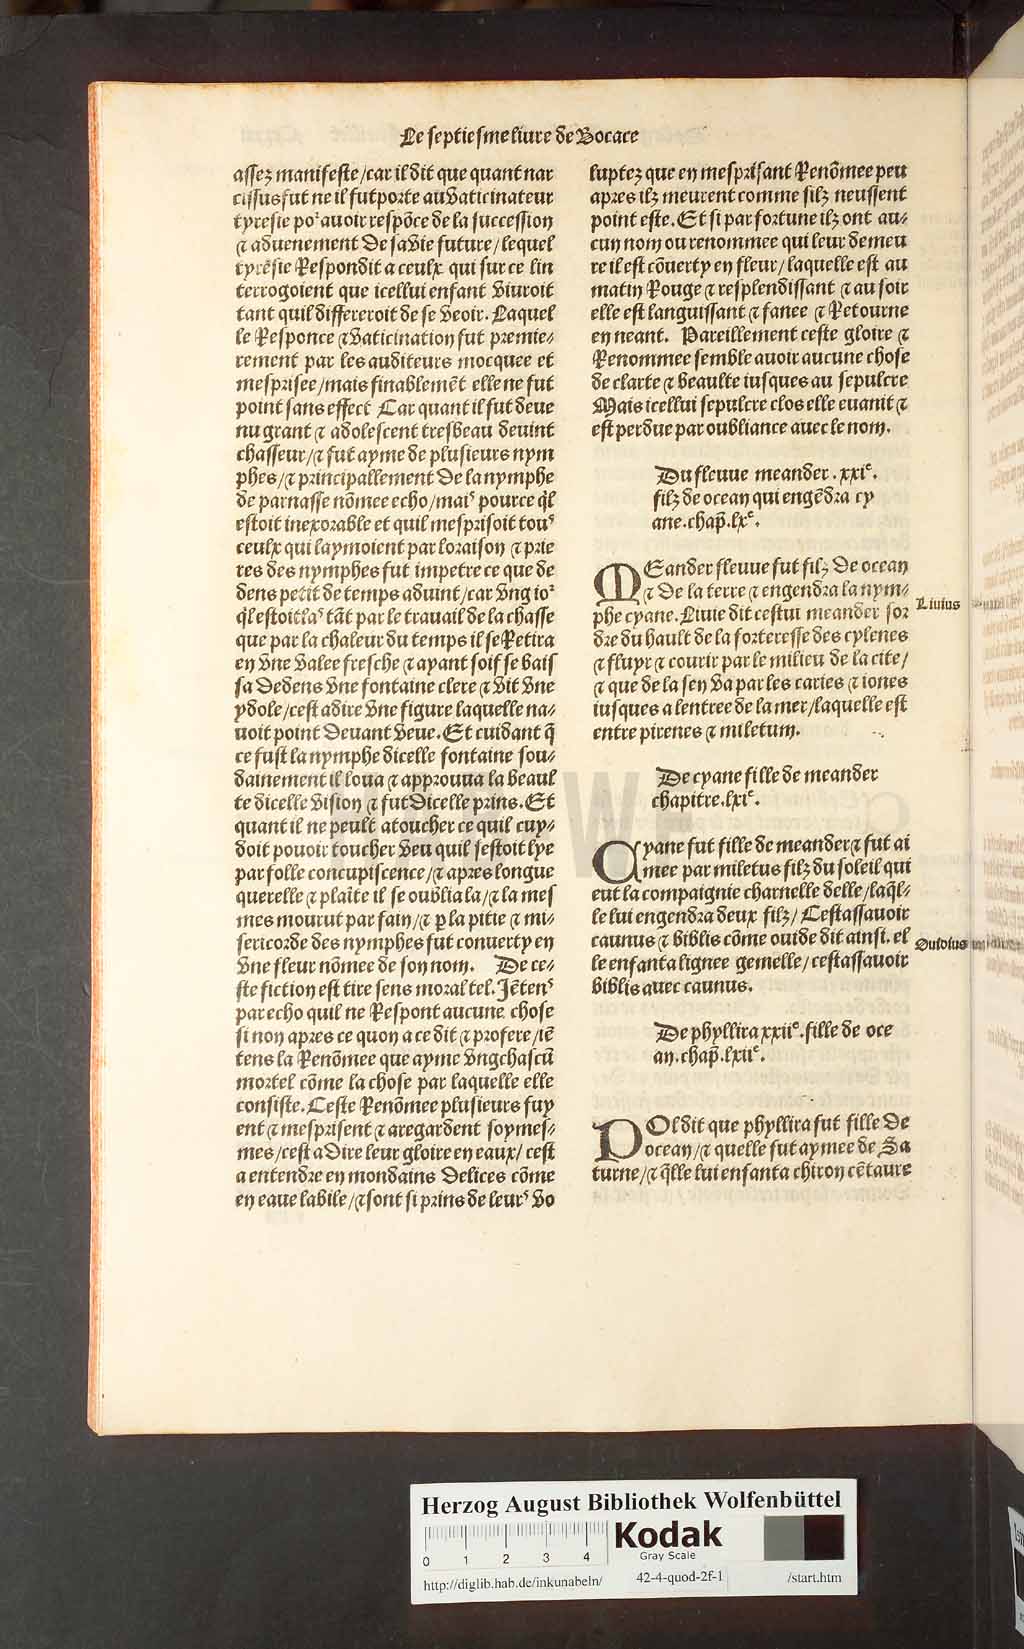 Le septiesme liure de Bocace
assez manifeste/car il dit que quant nar
cissus fut ne il fut porte au vaticinateur
tyresie poꝛ auoir respōce de la succession
⁊ aduenement de sa vie future/lequel
tyresie Respondit a ceulx qui sur ce lin
terrogoient que icellui enfant viuroit
tant quil differeroit de se veoir. Laquel
le Responce ⁊ vaticination fut premie⸗
rement par les auditeurs mocquee et
mesprisee/mais finablemēt elle ne fut
point sans effect Car quant il fut deue
nu grant ⁊ adolescent tresbeau deuint
chasseur/⁊ fut ayme de plusieurs nym
phes/⁊ principallement de la nymphe
de parnasse nōmee echo/maiˢ pource q̄l
estoit inexorable et quil mesprisoit touˢ
ceulx qui laymoient par loraison ⁊ prie
res des nymphes fut impetre ce que de
dens petit de temps aduint/car vng ioꝛ
q̄l estoit laˢ tāt par le trauail de la chasse
que par la chaleur du temps il se Retira
en vne valee fresche ⁊ ayant soif se bais
sa dedens vne fontaine clere ⁊ vit vne
ydole/cest a dire vne figure laquelle na⸗
uoit point deuant veue. Et cuidant q̄
ce fust la nymphe dicelle fontaine sou⸗
dainement il loua ⁊ approuua la beaul
te dicelle vision ⁊ fut dicelle prins. Et
quant il ne peult atoucher ce quil cuy⸗
doit pouoir toucher veu quil sestoit lye
par folle concupiscence/⁊ apres longue
querelle ⁊ plaīte il se oublia la/⁊ la mes
mes mourut par fain/⁊ p̱ la pitie ⁊ mi⸗
sericorde des nymphes fut conuerty en
vne fleur nōmee de son nom. De ce⸗
ste fiction est tire sens moral tel. Iētenˢ
par echo quil ne Respont aucune chose
si non apres ce quon a ce dit ⁊ profere/iē
tens la Renōmee que ayme vngchascū
mortel cōme la chose par laquelle elle
consiste. Ceste Renōmee plusieurs fuy
ent ⁊ mesprisent ⁊ aregardent soymes⸗
mes/cest a dire leur gloire en eaux/ cest
a entendre en mondains delices cōme
en eaue labile/⁊ sont si prins de leurˢ vo
luptez que en mesprisant Renōmee peu
apres ilz meurent comme silz neussent
point este. Et si par fortune ilz ont au⸗
cun nom ou renommee qui leur demeu
re il est cōuerty en fleur/laquelle est au
matin Rouge ⁊ resplendissant ⁊ au soir
elle est languissant ⁊ fanee ⁊ Retourne
en neant. Pareillement ceste gloire ⁊
Renommee semble auoir aucune chose
de clarte ⁊ beaulte iusques au sepulcre
Mais icellui sepulcre clos elle euanit ⁊
est perdue par oubliance auec le nom.
Du fleuue meander .xxiᵉ.
filz de ocean qui engēdra cy
ane. chap̄. lxᵉ.
MEander fleuue fut filz de ocean
⁊ de la terre ⁊ engendra la nym⸗
phe cyane. Liuie dit cestui meander sor
dre du hault de la forteresse des cylenes
⁊ fluyr ⁊ courir par le milieu de la cite/
⁊ que de la sen va par les caries ⁊ iones
iusques a lentree de la mer/laquelle est
entre pirenes ⁊ miletum.
Liuius
De cyane fille de meander
chapitre. lxiᵉ.
Cyane fut fille de meander ⁊ fut ai
mee par miletus filz du soleil qui
eut la compaignie charnelle delle/laq̄l⸗
le lui engendra deux filz/ Cestassauoir
caunus ⁊ biblis cōme ouide dit ainsi. el
le enfanta lignee gemelle/cestassauoir
biblis auec caunus.
Ouidius
De phyllira xxiiᵉ. fille de oce
an. chap̄. lxiiᵉ.
POl dit que phyllira fut fille de
ocean/⁊ quelle fut aymee de Sa
turne/⁊ q̄lle lui enfanta chiron cētaure
HAB WF
Herzog August Bibliothek Wolfenbüttel
0 1 2 3 4
Kodak
Gray Scale
http://diglib.hab.de/inkunabeln/ 42-4-quod-2f-1 /start.htm